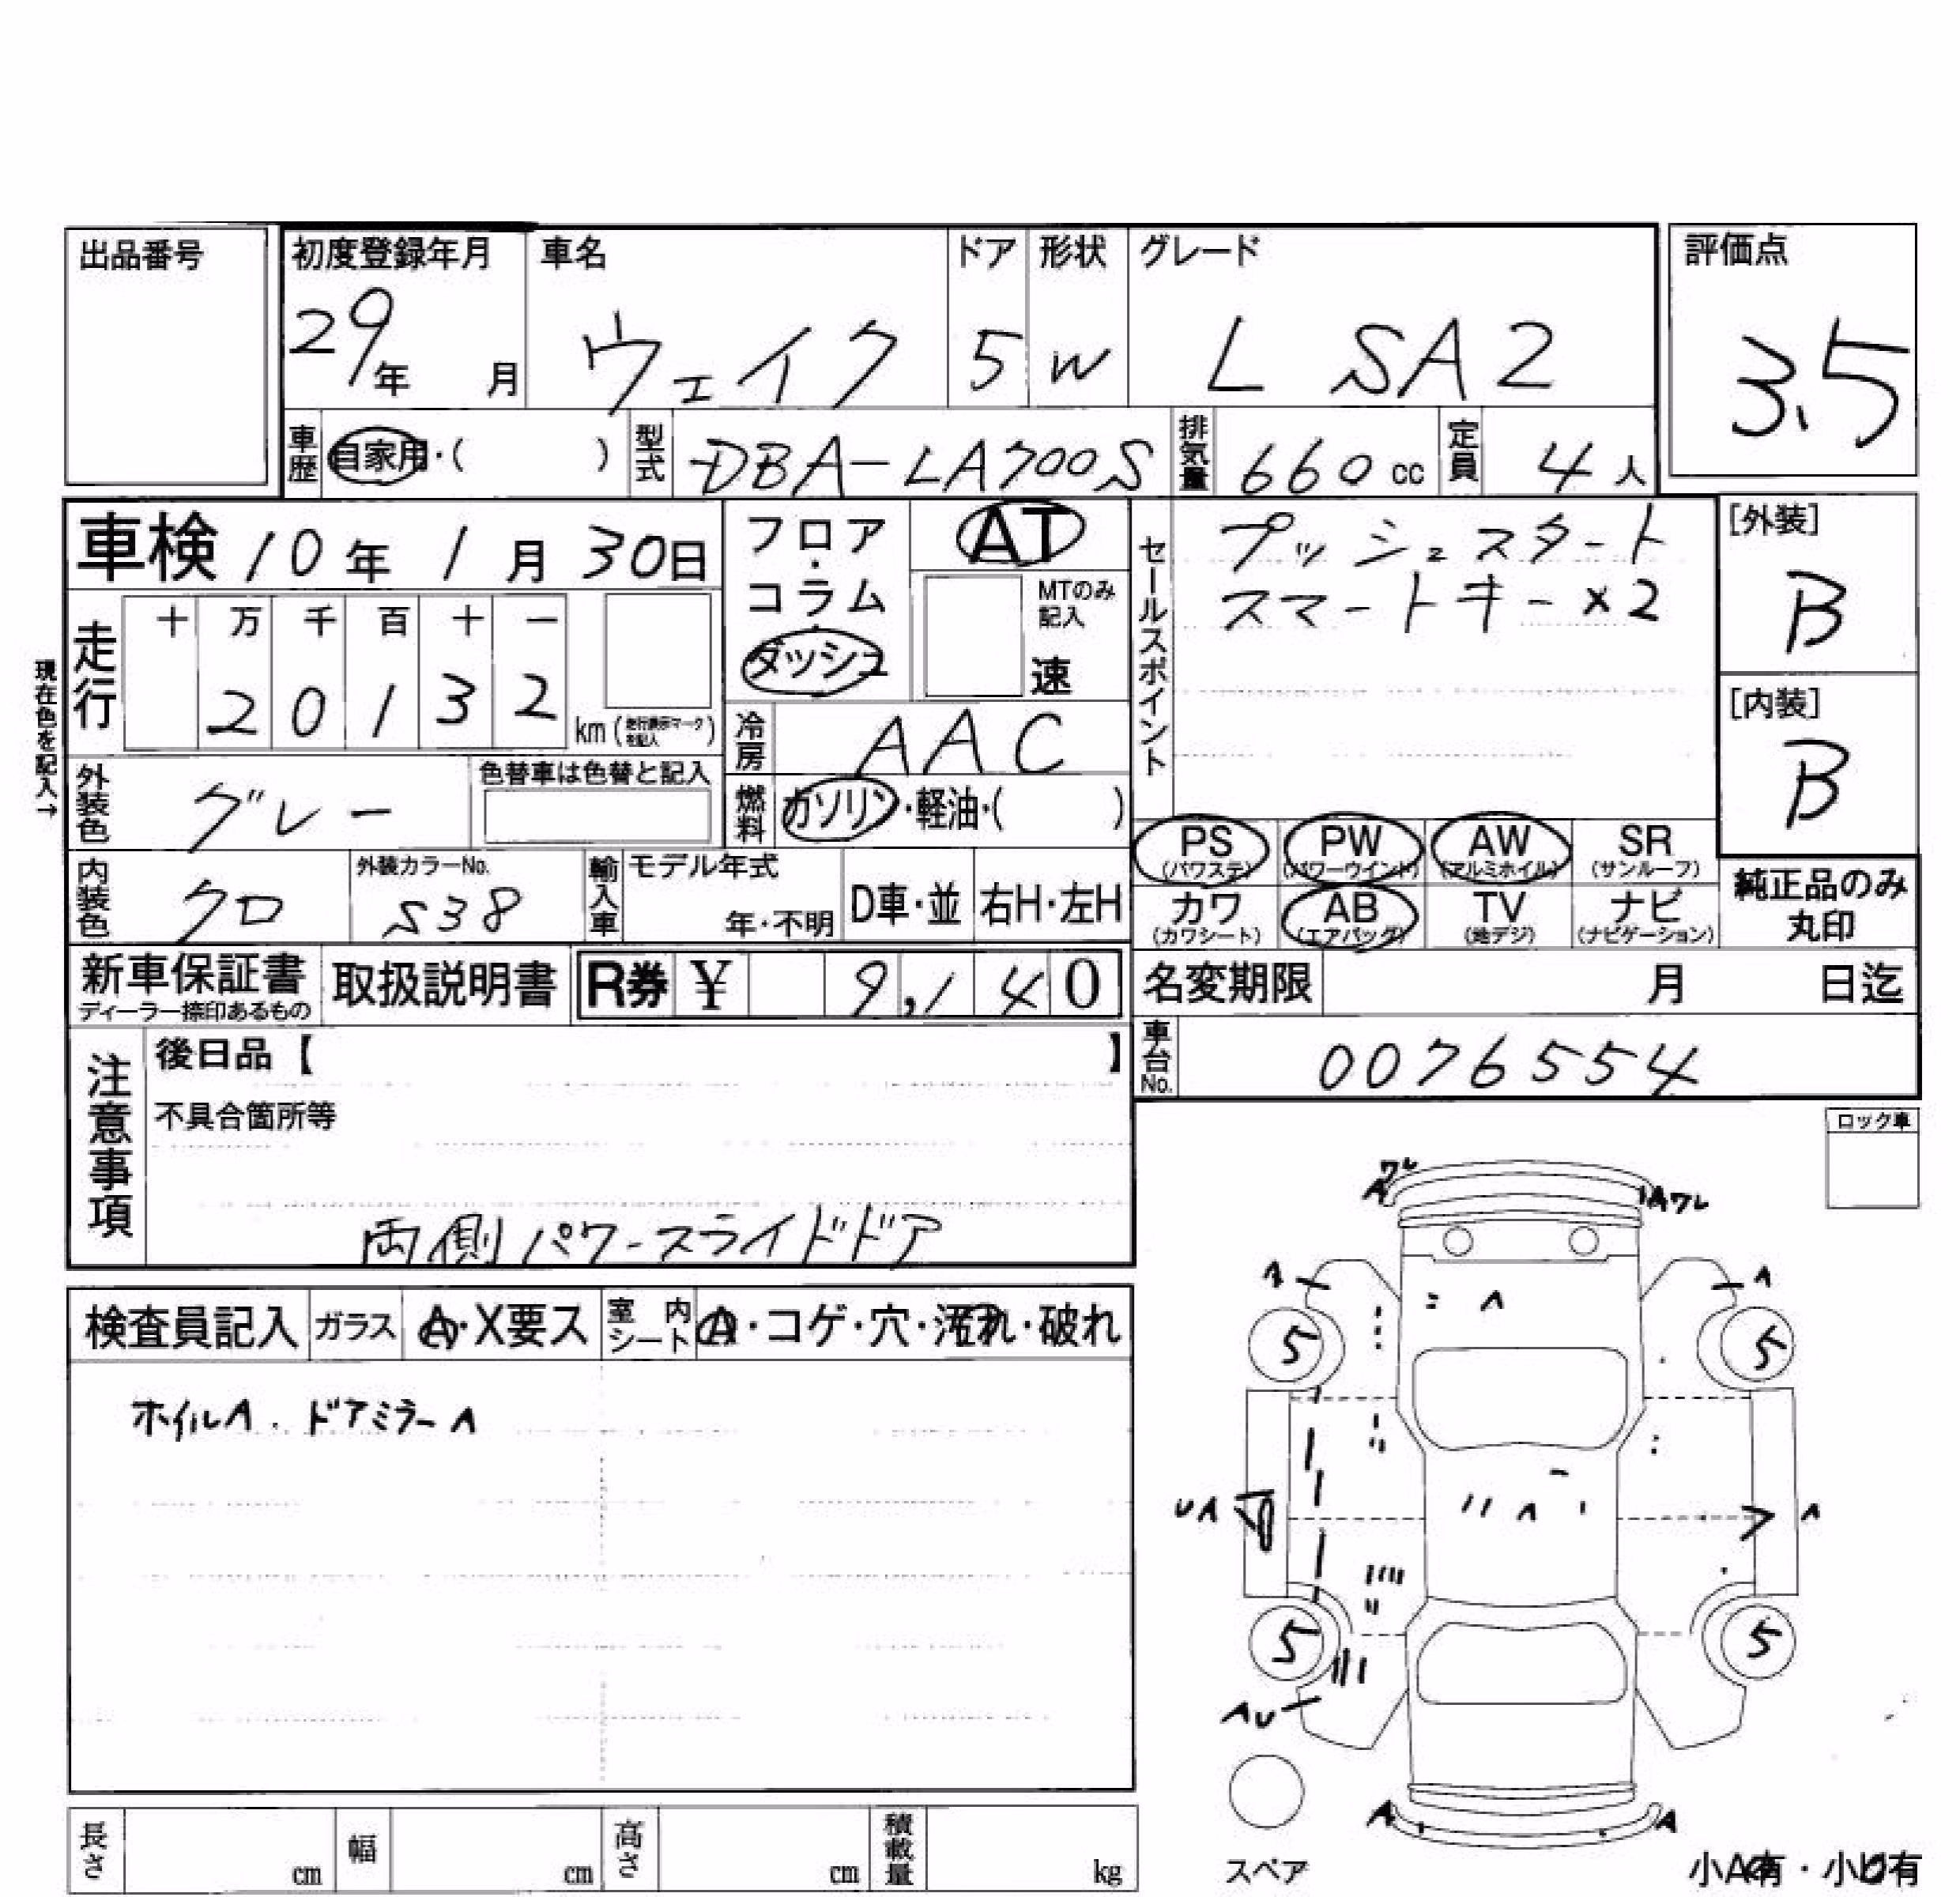 出品番号
初度登録年月 車名 ドア 形状 グレード 評価点
29年 月 ウェイク 5 W L SA2 3.5
車歴 自家用・( ) 型式 DBA-LA700S 排気量 660 cc 定員 4 人
車検 10年 1月 30日 フロア・コラム・ダッシュ AT
MTのみ記入 速
セールスポイント
プッシュスタート
スマートキー×2
[外装] B
[内装] B
現在色を記入→
走行 十 万 千 百 十 一
2 0 1 3 2 km (走行表示マークを記入)
冷房 AAC
外装色 グレー 色替車は色替と記入
燃料 ガソリン・軽油・( )
PS (パワステ) PW (パワーウインド) AW (アルミホイル) SR (サンルーフ)
カワ (カワシート) AB (エアバッグ) TV (地デジ) ナビ (ナビゲーション)
純正品のみ丸印
内装色 クロ 外装カラーNo. S38 輸入車 モデル年式 年・不明 D車・並 右H・左H
新車保証書 ディーラー捺印あるもの 取扱説明書 R券 ¥ 9,140
名変期限 月 日迄
車台No. 0076554
注意事項 後日品【 】
不具合箇所等
両側パワースライドドア
ロック車
検査員記入 ガラス A・X要ス 室内シート A・コゲ・穴・汚れ・破れ
ホイルA . ドアミラーA
ワレ
A Aワレ
A A
A
5 5
UA A A
5 5
AU
A A
スペア
小A有・小U有
長さ cm 幅 cm 高さ cm 積載量 kg